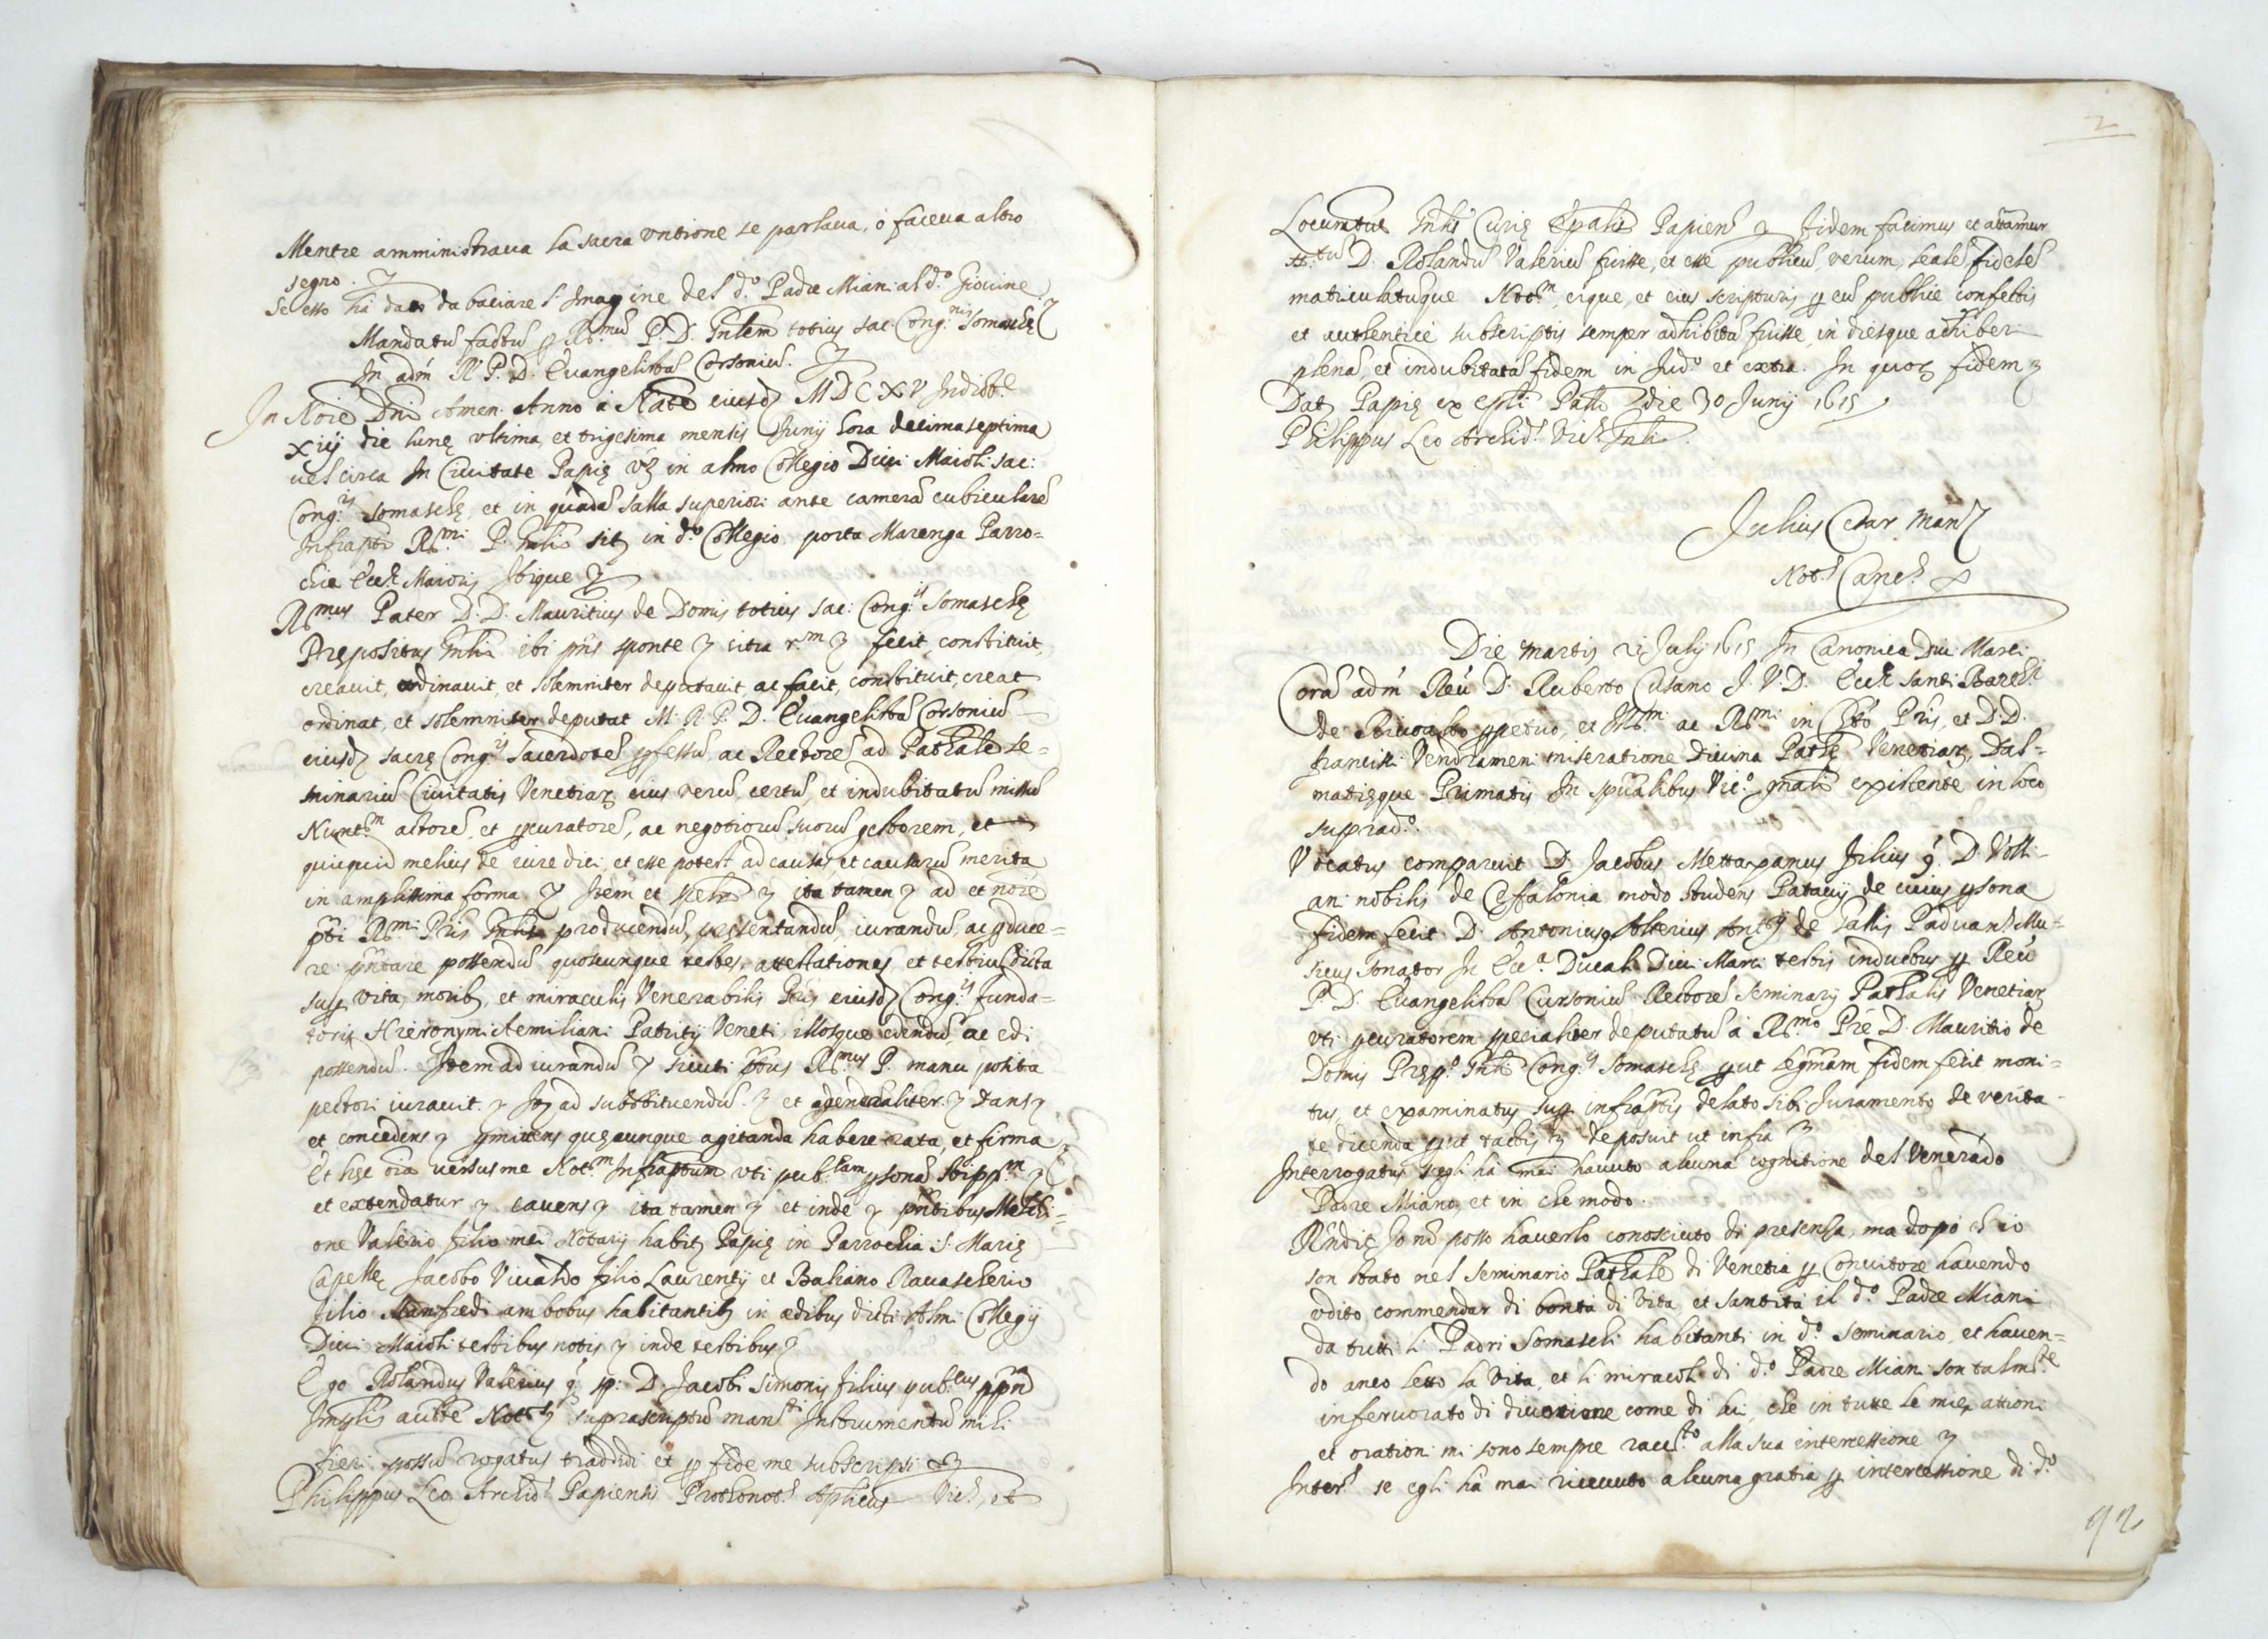 Mentre amministraua la sacra untione se parlaua, ò faceua altro
segno.
Se esso hà dato da baciare l'Imagine del d.º Padre Miani al d.º Giouine
Mandatũ factũ p R.mũ P. D. Gñlem totius sac. Cong.nis Somaschę
In adm̃ R. P. D. Euangelistã Corsoniũ.
In Noie Dñi Amen. Anno à Natte eiusd. MDCXV Indict.e
xiij die lunę ultima, et trigesima mensis Junij hora decimaseptima
uel circa In Ciuitate Papię uz in almo Collegio Diui Maioli sac:
Cong.is Somaschę, et in quadã salla superiori ante camerã cubicularẽ
Infrapti R.mi P. Gñlis sit. in d.º Collegio porta Marenga Parro=
chia Eccl. Maioris Ibique
R.mus Pater D. D. Mauritius de Domis totius sac: Cong.is Somaschę
Prępositus Gñlis ibi pñs sponte citra r.m fecit, constituit,
creauit, ordinauit, et solemniter deputauit, ac facit, constituit, creat
ordinat, et solemniter deputat M. R. P. D. Euangelistã Corsoniũ
eiusd. sacrę Cong.is Sacerdotẽ pfessũ, ac Rectorẽ ad Pathale Se=
minariũ Ciuitatis Venetiar. eius uerũ, certũ, et indubitatũ missũ
Nunt.m actorẽ, et pcuratorẽ, ac negotiorũ suorũ gestorem, et
quicquid melius de iure dici, et esse potest ad causas, et causarũ merita
in amplissima forma Item et spetr ita tamen ad et noie
pti R.mi Pris Gñlis producendũ, pręsentandũ, iurandũ, ac pduce=
re pñtare possendũ quoscunque testes, attestationes et testiũ dicta
sup uita, morib., et miraculis Venerabilis Pris eiusd. Cong.is funda=
toris Hieronymi Aemiliani Patritij Veneti, illosque edendũ, ac edi
possendũ. Item ad iurandũ sicuti ptus R.mus P. manu posita
pectori iurauit. It. ad substituendũ. et generaliter. Dans
et concedens pmittens quęcunque agitanda habere rata, et firma
Et hęc oia uersus me Not.m Infraptum uti pub.cam psonã stipp.m
et extendatur cauens ita tamen et inde pñtibus Melchi=
one Valerio filio mei Notarij habit. Papię in Parrochia S. Marię
Capellę Jacobo Viualdo filio Laurentij et Baliano Rauascherio
filio Manfredi ambobus habitantib. in ædibus dicti Almi Collegij
Diui Maioli testibus notis inde testibus
Ego Rolandus Valerius q. sp: D. Jacobi Simonis filius pub.cus ppñs
Imptlis auctte Not.s suprascriptũ man.ti Instrumentũ mihi
fieri possũ rogatus tradidi et p fide me subscripsi
Philippus Leo Archid.s Papiensis Prothonot.s Aplicus Vic.s, et
2
Locumteñs Gñlis Curię Epalis Papiens. Fidem facimus et attamur
st.tũ D. Rolandũ Valeriũ fuisse, et esse publicũ, uerum, lealẽ, fidelẽ
matriculatũque Not.m, eique, et eius scripturis p eũ publice confectis
et authentice subscriptis semper adhibitã fuisse, in diesque adhiberi
plenã, et indubitatã fidem in Jud.º et extra. In quor. fidem
Dat. Papię ex Epli Palt. die 30 Junij 1615
Philippus Leo Archid.s Vic.s Gñlis.
Julius Cęsar Man.
Not.s Canc.s
Die Martis 21 Julij 1615 In Canonica Diui Marci
Corã adm̃ Reũ D. Ruberto Cusano J. V. D. Eccl. Santi Barth.i
de Riuoalto ppetuo, et Ill.mi ac R.mi in Chro Pris, et D. D.
Francisci Vendrameni miseratione Diuina Pathę Venetiar., Dal=
matięque Primatis In spũalibus Vic.º gnali existente in loco
suprad.º.
Vocatus comparuit D. Jacobus Mettaxanus filius q. D. Volti-
ani nobilis de Ceffalonia modo studens Patauij de cuius psona
fidem fecit D. Antonius Asterius Ant.ij de Sallis Paduan. Mu=
sicus sonator In Ecc.a Ducali Diui Marci testis inductus p Reũ
P. D. Euangelistã Cursoniũ Rectorẽ Seminarij Pathalis Venetiar.
uti pcuratorem specialiter deputatũ à R.mo Prẽ D. Mauritio de
Domis Pręp.º Gñli Cong.is Somaschę put legitimam fidem fecit moni=
tus, et examinatus sup infraptis delato sibi Juramento de uerita-
te dicenda put tactis deposuit ut infra
Interrogatus s'egli hà mai hauuto alcuna cognitione del Venerãdo
Padre Miano, et in che modo.
Rñdit Jo nõ posso hauerlo conosciuto di presensa, ma dopò ch'io
son stato nel Seminario Pathale di Venetia p Conuitore hauendo
udito commendar di bontà di uita, et santità il d.º Padre Miani
da tutti li Padri Somaschi habitanti in d.º Seminario, et hauen=
do anco letto la Vita, et li miracoli di d.º Padre Miani son talm.te
inferuorato di diuotione come di lui, che in tutte le mie attioni
et orationi mi sono sempre racc.to alla sua intercessione
Inter.s se egli hà mai riceuuto alcuna gratia p intercessione di d.º
92